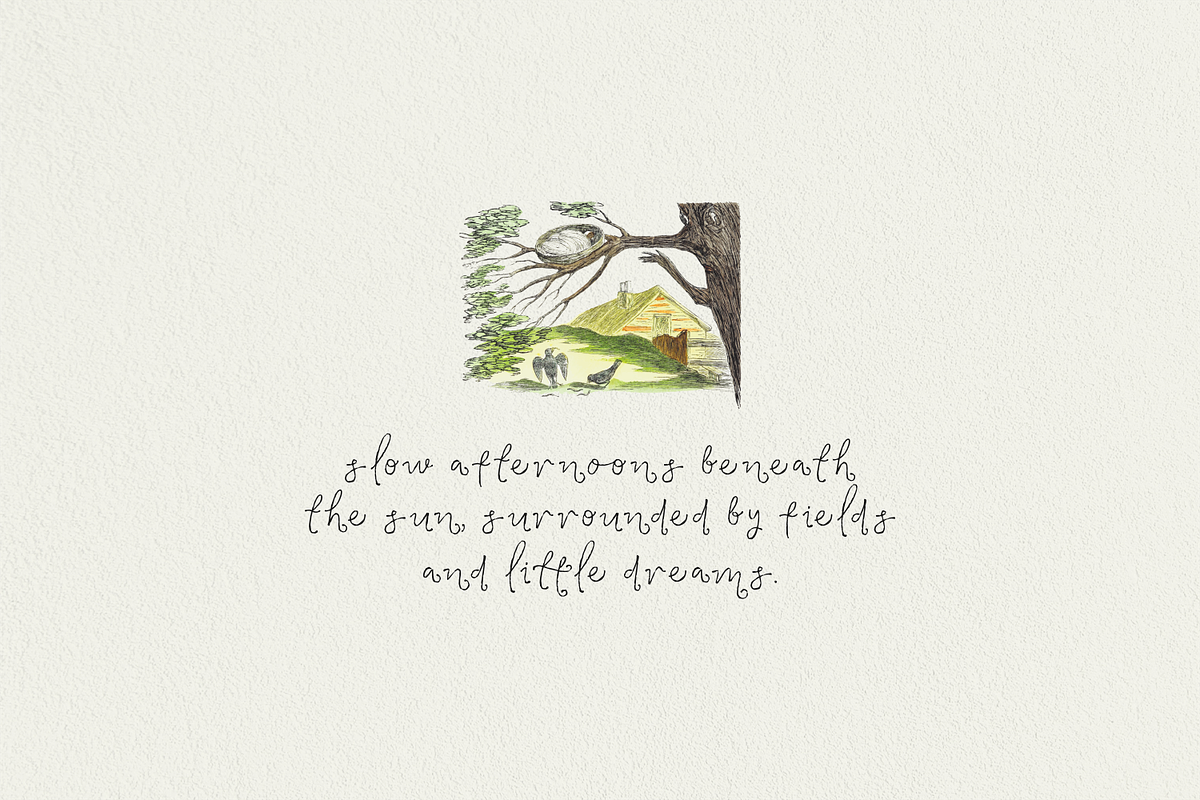 slow afternoons beneath
the sun, surrounded by fields
and little dreams.